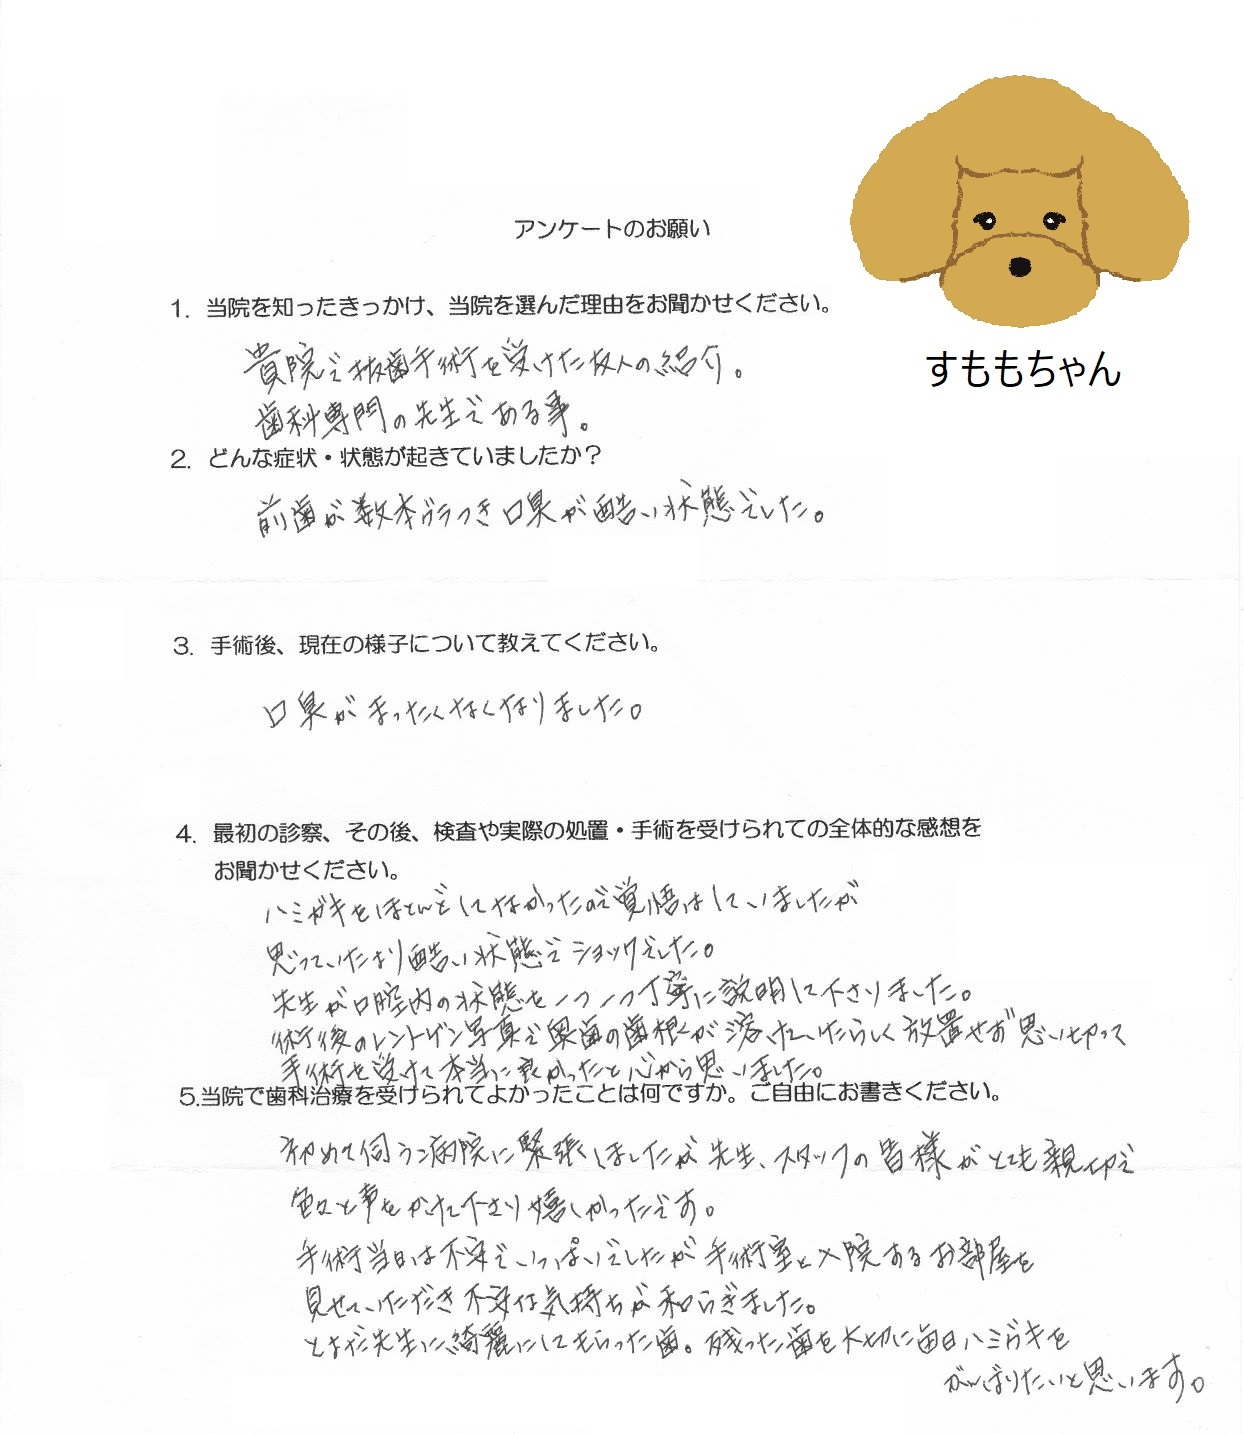 アンケートのお願い
すももちゃん
1. 当院を知ったきっかけ、当院を選んだ理由をお聞かせください。
貴院で抜歯手術を受けた友人の紹介。
歯科専門の先生である事。
2. どんな症状・状態が起きていましたか？
前歯が数本グラつき口臭が酷い状態でした。
3. 手術後、現在の様子について教えてください。
口臭がまったくなくなりました。
4. 最初の診察、その後、検査や実際の処置・手術を受けられての全体的な感想を
お聞かせください。
ハミガキをほとんどしてなかったので覚悟はしていましたが
思っていたより酷い状態でショックでした。
先生が口腔内の状態を一つ一つ丁寧に説明して下さりました。
術後のレントゲン写真で奥歯の歯根が溶けていたらしく放置せず思い切って
手術を受けて本当に良かったと心から思いました。
5.当院で歯科治療を受けられてよかったことは何ですか。ご自由にお書きください。
初めて伺う病院に緊張しましたが先生、スタッフの皆様がとても親切で
色々と声をかけて下さり嬉しかったです。
手術当日は不安でいっぱいでしたが手術室と入院するお部屋を
見せていただき不安な気持ちが和らぎました。
とまだ先生に綺麗にしてもらった歯。残った歯を大切に毎日ハミガキを
がんばりたいと思います。